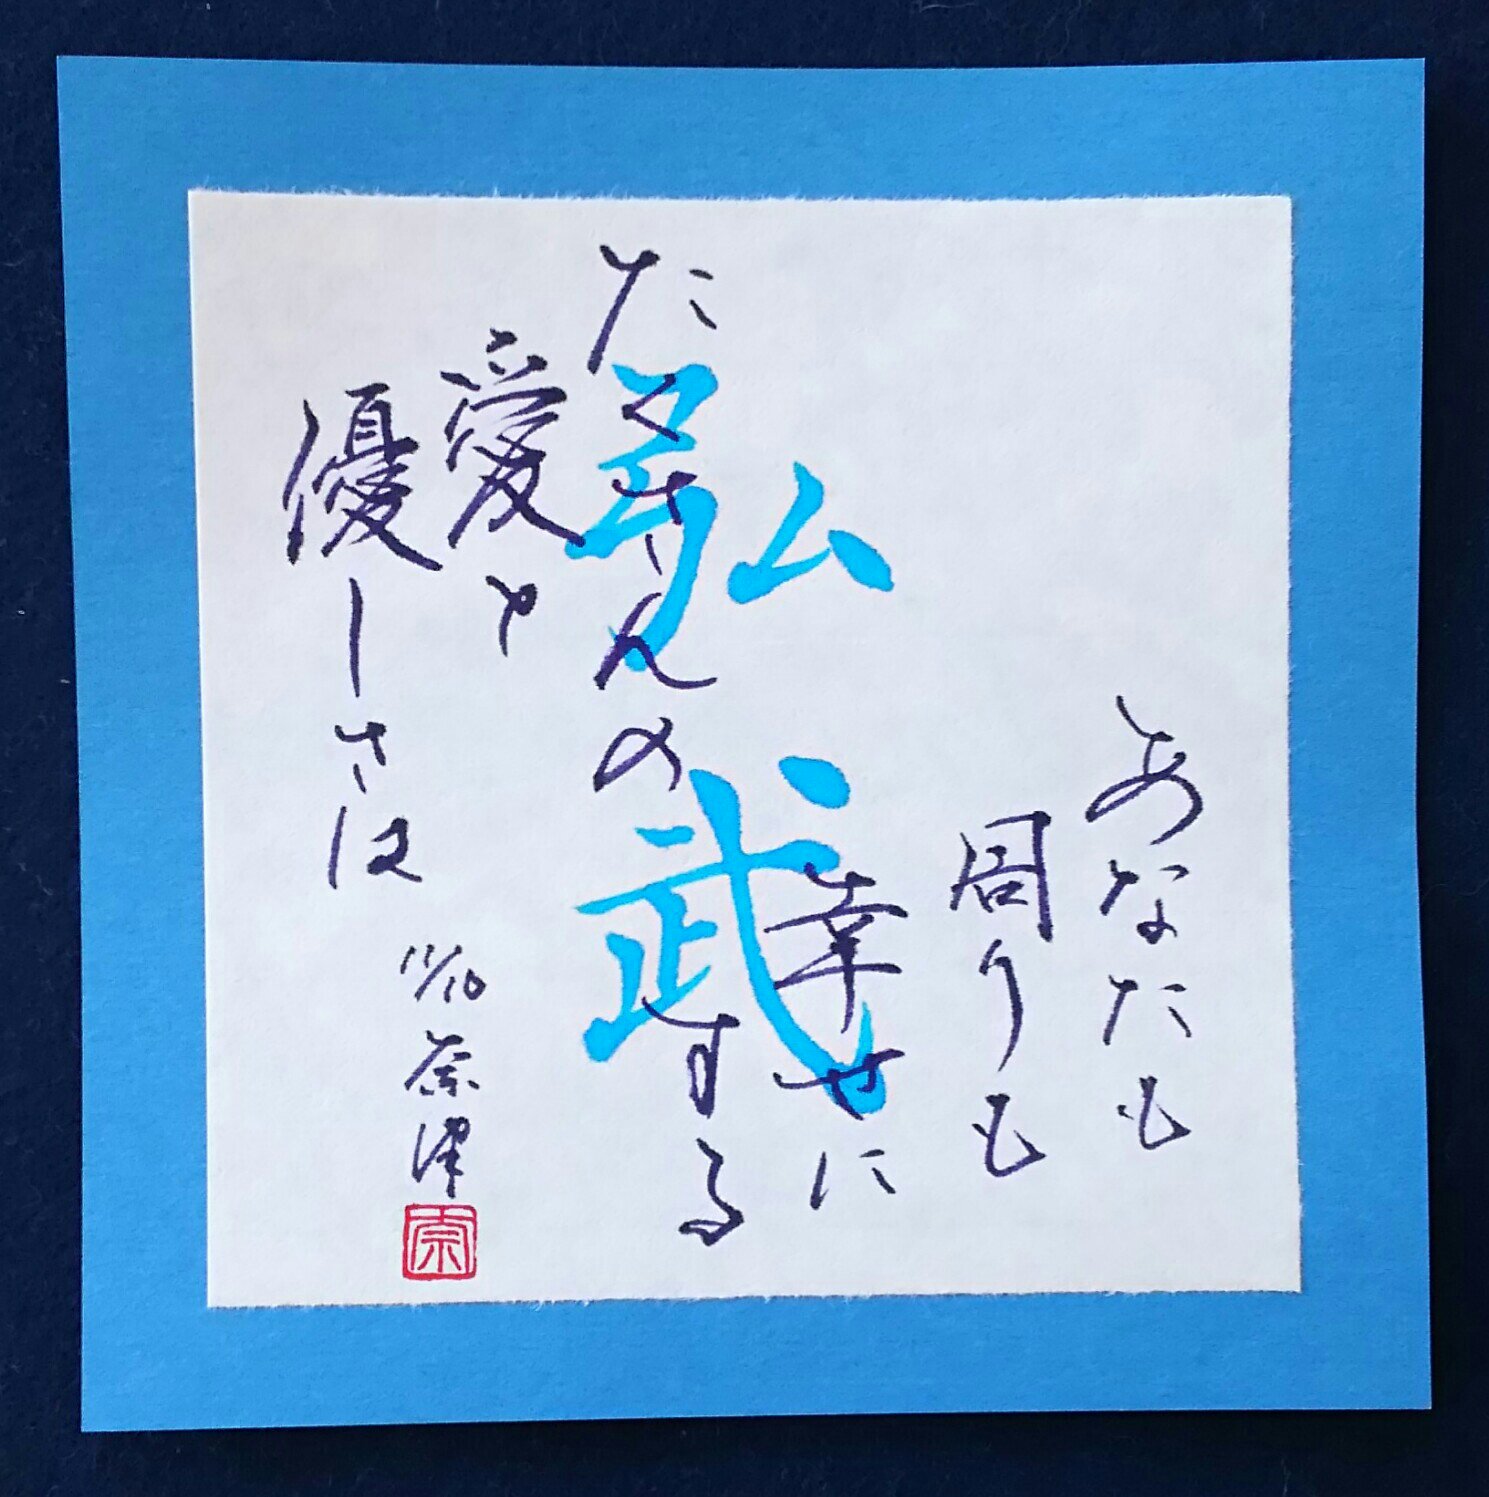 弘武
たくさんの
愛と
優しさは
あなたも
周りも
幸せに
する
11/10
奈津
奈